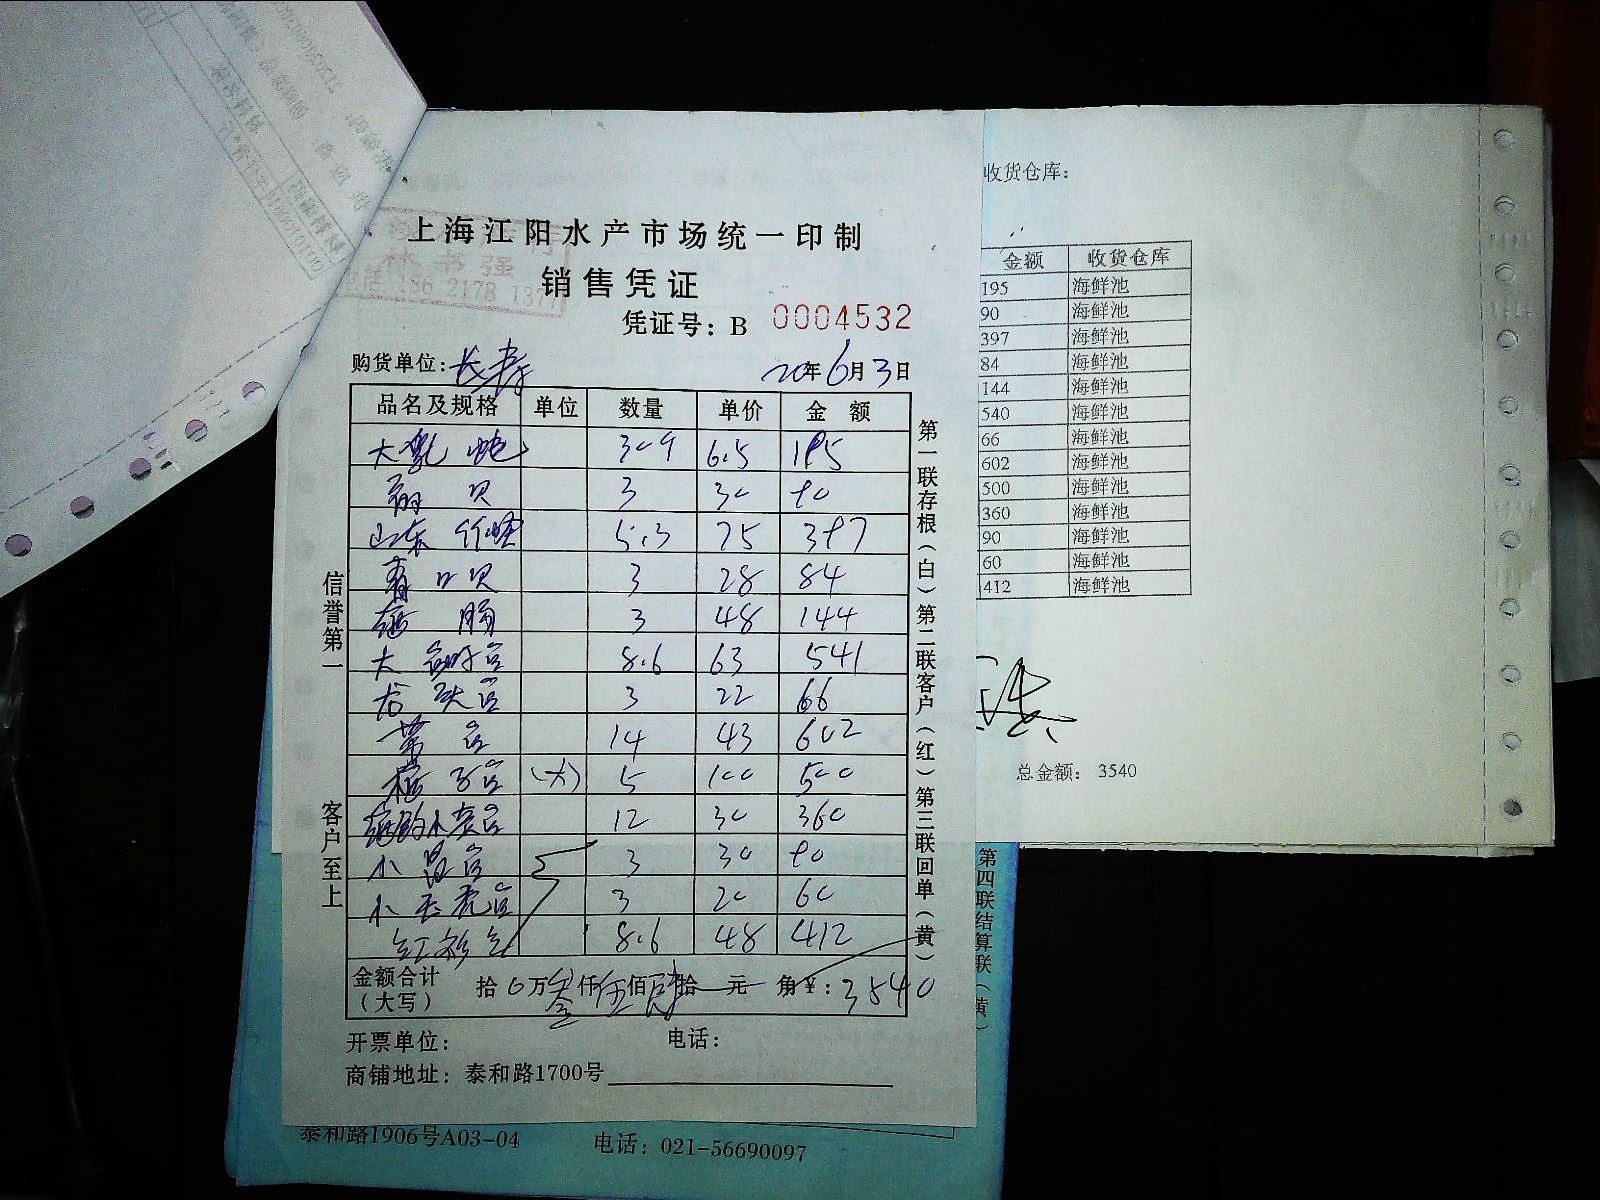 上海江阳水产市场统一印制
销售凭证
凭证号：B 0004532
购货单位：长寿 20年6月3日
品名及规格 单位 数量 单价 金 额
大 蛇 30斤 6.5 195
贝 3 30 90
山东 竹蛏 5.3 75 397
青口贝 3 28 84
海肠 3 48 144
大 鱼 8.6 63 541
龙头鱼 3 22 66
带鱼 14 43 602
鱼 (大) 5 100 500
小黄鱼 12 30 360
小 鱼 3 30 90
小老虎鱼 3 20 60
红衫鱼 8.6 48 412
金额合计（大写） 拾 0万叁仟伍佰肆拾 元 角￥：3540
开票单位： 电话：
商铺地址：泰和路1700号
信誉第一
客户至上
第一联存根（白）第二联客户（红）第三联回单（黄）
林书强
136 2178 137
收货仓库：
金额 收货仓库
195 海鲜池
90 海鲜池
397 海鲜池
84 海鲜池
144 海鲜池
540 海鲜池
66 海鲜池
602 海鲜池
500 海鲜池
360 海鲜池
90 海鲜池
60 海鲜池
412 海鲜池
总金额： 3540
第四联结算联（黄）
泰和路1906号A03-04 电话：021-56690097